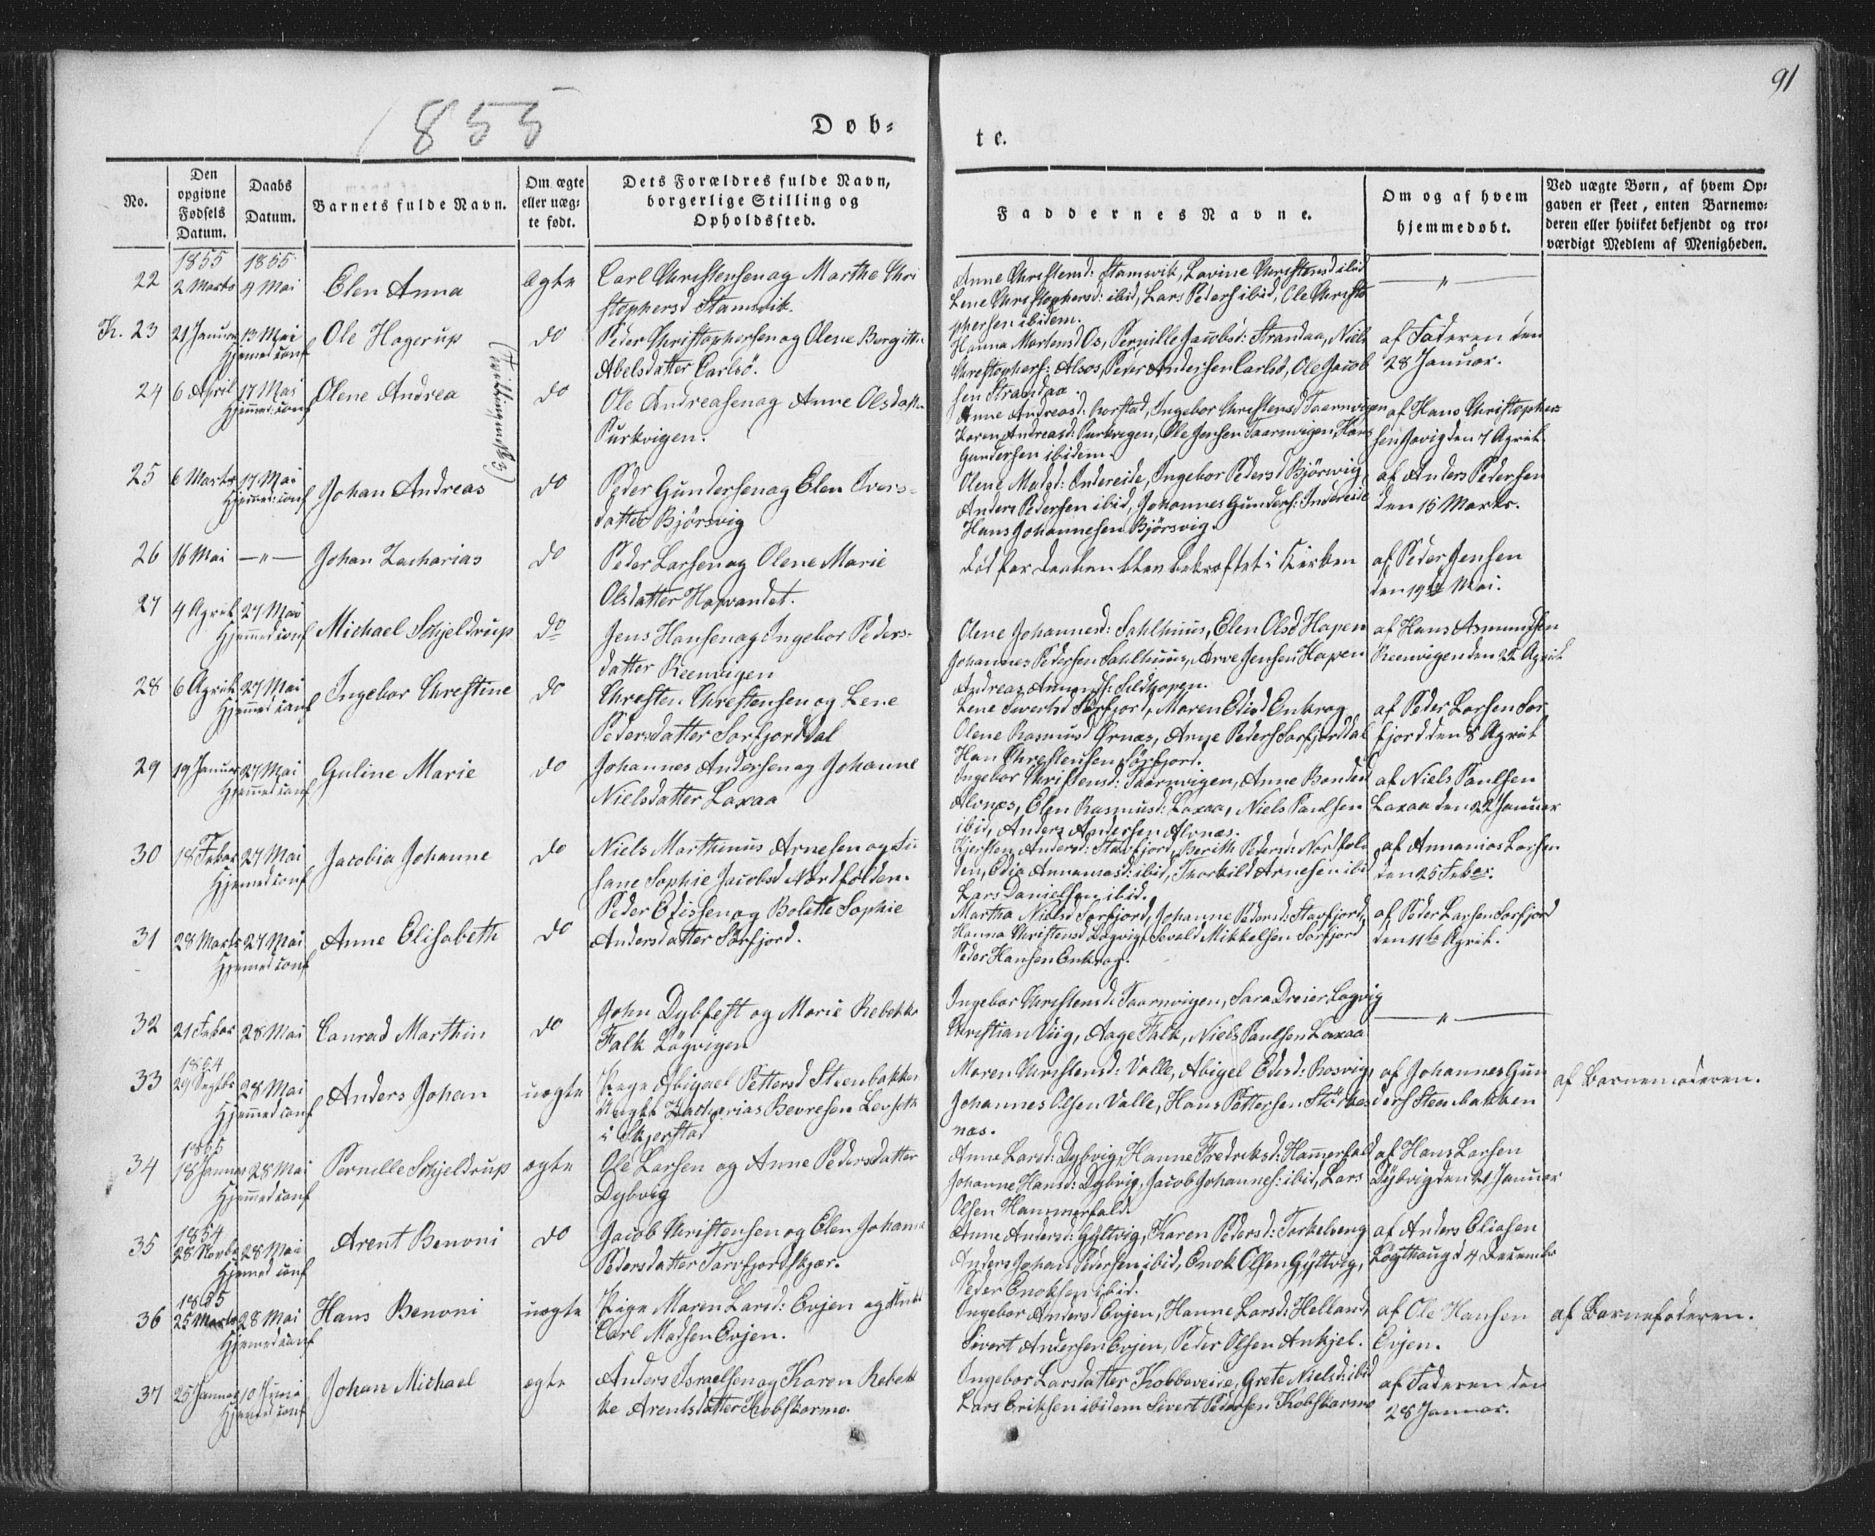 91
1855
Døb-
te.
No.
Den opgivne Fødsels Datum.
Daabs Datum.
Barnets fulde Navn.
Om ægte eller uægte født.
Dets Forældres fulde Navn, borgerlige Stilling og Opholdssted.
Faddernes Navne.
Om og af hvem hjemmedøbt.
Ved uægte Børn, af hvem Opgaven er skeet, enten Barnemoderen eller hvilket bekjendt og troværdigt Medlem af Menigheden.
1855 1855
22 2 Marts 9 Mai Elen Anna ægte Carl Christensen og Marthe Chri
stophersd Stamsvik.
Anne Christensd: Stamsvik, Lovine Christensd ibid
Lene Christophersd: ibid, Lars Peders ibid, Ole Christo
phersen ibidem.
"
K. 23 21 Januar 13 Mai Hjemmed conf Ole Hagerup do Peder Christophersen og Olene Bergitte
Abelsdatter Carlsö.
Hanna Martensd Os, Pernille Jacobsd: Strandaa, Niels
Christophers: Alsos, Peder Andersen Carlsö, Ole Jacob
sen Strandaa.
af Faderen den
28 Januar.
24 6 April 17 Mai Hjemmed conf Olene Andrea do Ole Andreasen og Anne Olsdatter
Purkvigen.
Anne Andreasd: Korstad, Ingebor Christensd Taarnvigen
Karen Andreasd: Purkvigen, Ole Jensen Taarnvigen Hans
Gundersen ibidem.
af Hans Christopher
sen Gövig den 7 April
25 6 Marts 17 Mai Hjemmed: conf Johan Andreas (Tvillinge) do Peder Gundersen og Elen Ivers-
datter Bjørsvig
Olene Madsd: Indereide, Ingebor Pedersd Bjørsvig,
Anders Pedersen ibid, Johannes Gunders: Indereide
Hans Johannesen Bjørsvig.
af Anders Pedersen
den 15 Marts.
26 16 Mai —"— Johan Zacharias do Peder Larsen og Olene Marie
Olsdatter Hopvandet.
død før Daaben blev bekræftet i Kirken
af Peder Jensen
den 19de Mai.
27 4 April 27 Mai Hjemmed conf Michael Schjeldrup do Jens Hansen og Ingebor Peders-
datter Reenvigen
Olene Johannesd: Sahlhuus, Elen Olsd Hopen
Johannes Pedersen Sahlhuus, Arve Jensen Hopen
Andreas Amunds: Sildhopen.
af Hans Asmundsen
Reenvigen den 22 April
28 6 April 27 Mai Hjemmed conf Ingebor Christine do Christen Christensen og Lene
Pedersdatter Sørfjorddal
Lene Sivertsd Sørfjord, Maren Edisd Enkrog
Olene Rasmusd Ørnæs, Anne Peders Sørfjorddal
Han Christensen Sörfjord.
af Peder Larsen Sør
fjord den 8 April
29 19 Januar 27 Mai Hjemmed conf Guline Marie do Johannes Andersen og Johanne
Nielsdatter Laxaa
Ingebor Christensd: Taarnvigen, Anne Bendsd
Alvnæs, Elen Rasmusd: Laxaa, Niels Paulsen
ibid, Anders Andersen Alvnæs.
af Niels Paulsen
Laxaa den 22 Januar
30 18 Febar 27 Mai Hjemmed conf Jacobia Johanne do Niels Marthinus Arnesen og Su
sane Sophie Jacobsd Nordfolden.
Kjersten Andersd: Stavfjord, Berith Pedersd: Nordfol
den, Edia Annaniasd: ibid, Thorkild Arnesen ibid
Lars Danielsen ibid.
af Annanias Larsen
den 25 Febar.
31 28 Marts 27 Mai Hjemmed conf Anne Elisabeth do Peder Edissen og Bolette Sophie
Andersdatter Sørfjord.
Martha Nielsd Sørfjord, Johanne Pedersd: Stavfjord,
Hanna Christensd Løgvig, Sevald Mikkelsen Sørfjord
Peder Hansen Enkrog.
af Peder Larsen Sørfjord
den 11te April.
32 21 Febar 28 Mai Conrad Marthin do John Dybfest og Marie Rebekke
Falk Lögvigen
Ingebor Christensd: Taarnvigen, Sara Dreier Løgvig
Christian Wiig, Aage Falk, Niels Paulsen Laxaa
"
1854
33 29 Septbr 28 Mai Hjemmed conf Anders Johan uægte Pigen Abigael Pettersd Steenbakken
Ungkl Zacharias Beresen Levseth
i Skjerstad
Maren Christensd: Valle, Abigel Edisd: Rosvig,
Johannes Olsen Valle, Hans Pettersen Störke
næs.
af Johannes Gun
ders Steenbakken
af Barnemoderen.
1855
34 18 Januar 28 Mai Hjemmed conf Pernille Schjeldrup ægte Ole Larsen og Anne Pedersdatter
Dybvig
Anne Larsd: Dybvig, Hanne Fredriksd: Hamerfald
Johanne Hansd: Dybvig, Jacob Johannes: ibid, Lars
Olsen Hammerfald.
af Hans Larsen
Dybvig den 21 Januar
1854
35 28 Novbr 28 Mai Hjemmed conf Arent Benoni do Jacob Christensen og Elen Johanna
Pedersdatter Tørfjordskjær.
Anne Andersd: Gyltvig, Karen Pedersd: Torkelveng
Anders Johan Pedersen ibid, Enok Olsen Gyltvig,
Peder Enoksen ibid.
af Anders Eliasen
Løgthaug d 4 Decembr
1855
36 25 Marts 28 Mai Hjemmed conf Hans Benoni uægte Pige Maren Larsd: Evjen og Unkl
Carl Madsen Evjen.
Ingebor Andersd Evjen, Hanne Larsd: Helland,
Sivert Andersen Evjen, Peder Olsen Ankjel.
af Ole Hansen
Evjen.
af Barnefaderen.
37 25 Januar 10 Juni Hjemmed conf Johan Michael ægte Anders Israelsen og Karen Rebek
ke Arentsdatter Kobskarmo.
Ingebor Larsdatter Kobbeveide, Grete Nielsd: ibid
Lars Eriksen ibidem Sivert Pedersen Kobskarmo
af Faderen den
28 Januar.